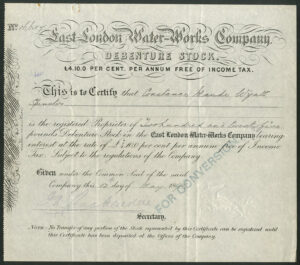 No.
East London Water-Works Company.
DEBENTURE STOCK.
£4.10.0 PER CENT. PER ANNUM FREE OF INCOME TAX.
This is to Certify that Constance Maude Wyatt
Spinster
is the registered Proprietor of two hundred and twenty five
pounds Debenture Stock in the EAST LONDON WATER-WORKS COMPANY bearing
interest at the rate of £4.10.0 per cent per annum free of Income
Tax. Subject to the regulations of the Company
Given under the Common Seal of the said
Company this 12 day of May
FOR CONVERSION
Secretary.
NOTE.—No Transfer of any portion of the Stock represented by this Certificate can be registered until
this Certificate has been deposited at the Offices of the Company.